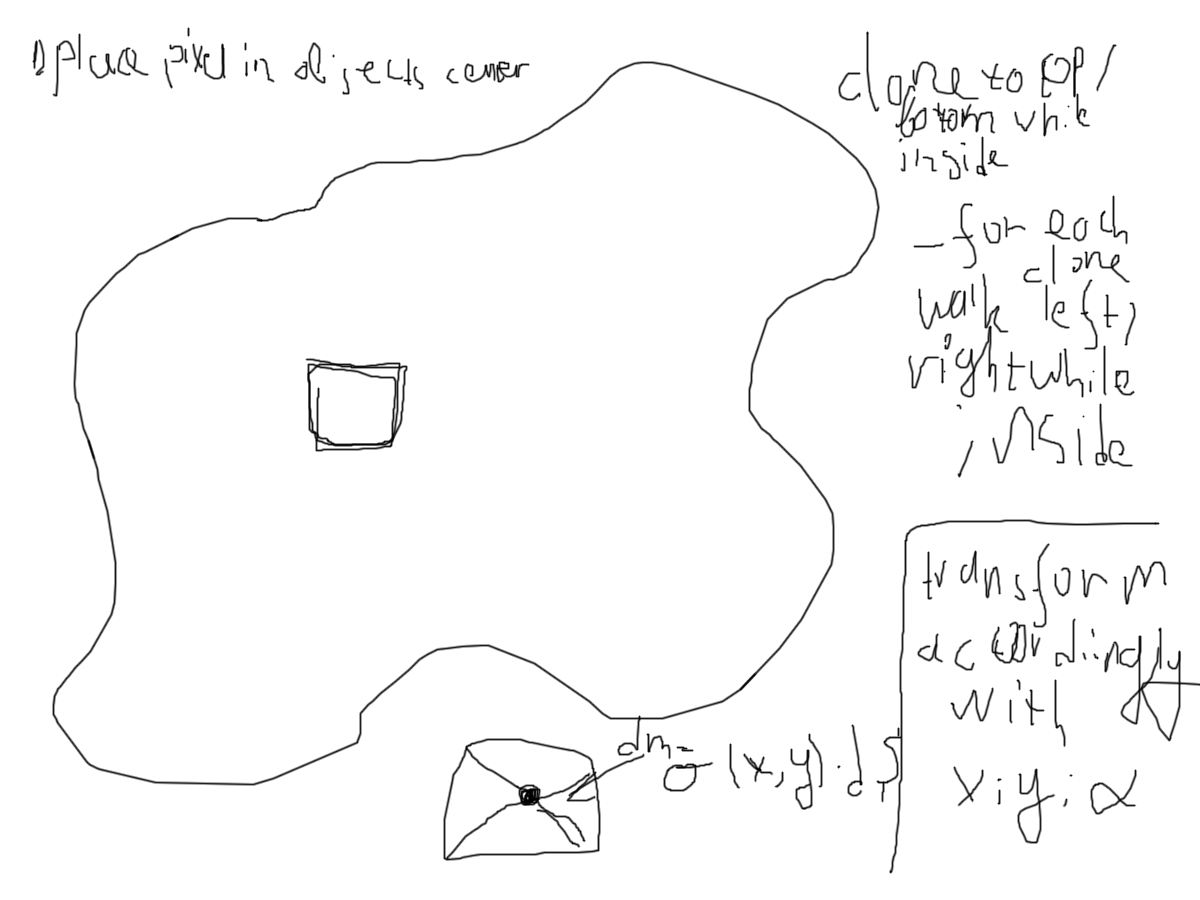 1) place pixel in objects center
clone to top/
bottom while
inside
- for each
clone
walk left,
right while
inside
transform
accordingly
with
x; y; α
dm = σ (x, y) · dS